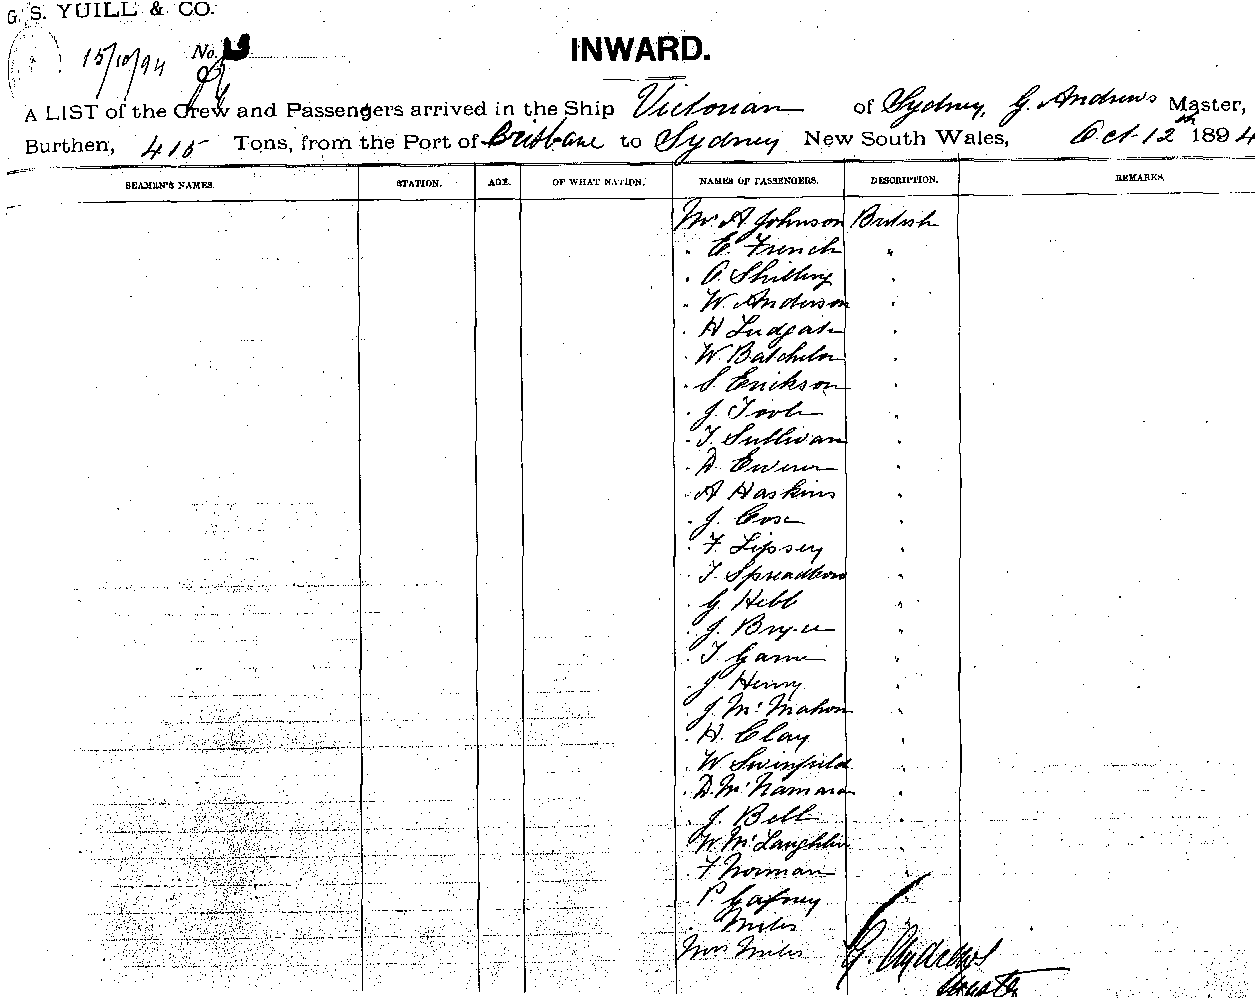 G. S. YUILL & CO.
15/10/94 No.
INWARD.
A LIST of the Crew and Passengers arrived in the Ship Victorian of Sydney, G. Andrews Master,
Burthen, 415 Tons, from the Port of Brisbane to Sydney New South Wales, Oct 12th 1894
SEAMEN'S NAMES. STATION. AGE. OF WHAT NATION. NAMES OF PASSENGERS. DESCRIPTION. REMARKS.
Mr A Johnson British
" E. French "
" Shilling "
" W. Anderson "
" H Ludgate "
" W. Batchelor "
" S. Erickson "
" J. Toole "
" T. Sullivan "
" D. "
" A Haskins "
" J. "
" F. Lipsey "
" T. Spreadbow "
" G Hebb "
" J. Bryce "
" T "
" J Henry "
" J. McMahon "
" H. Clay "
" W Swinfield "
" D. McNamara "
" J. Bell "
" W McLaughlin "
" F Norman "
" P Gafney "
" Miles
Mrs Miles
G. Andrews
Master